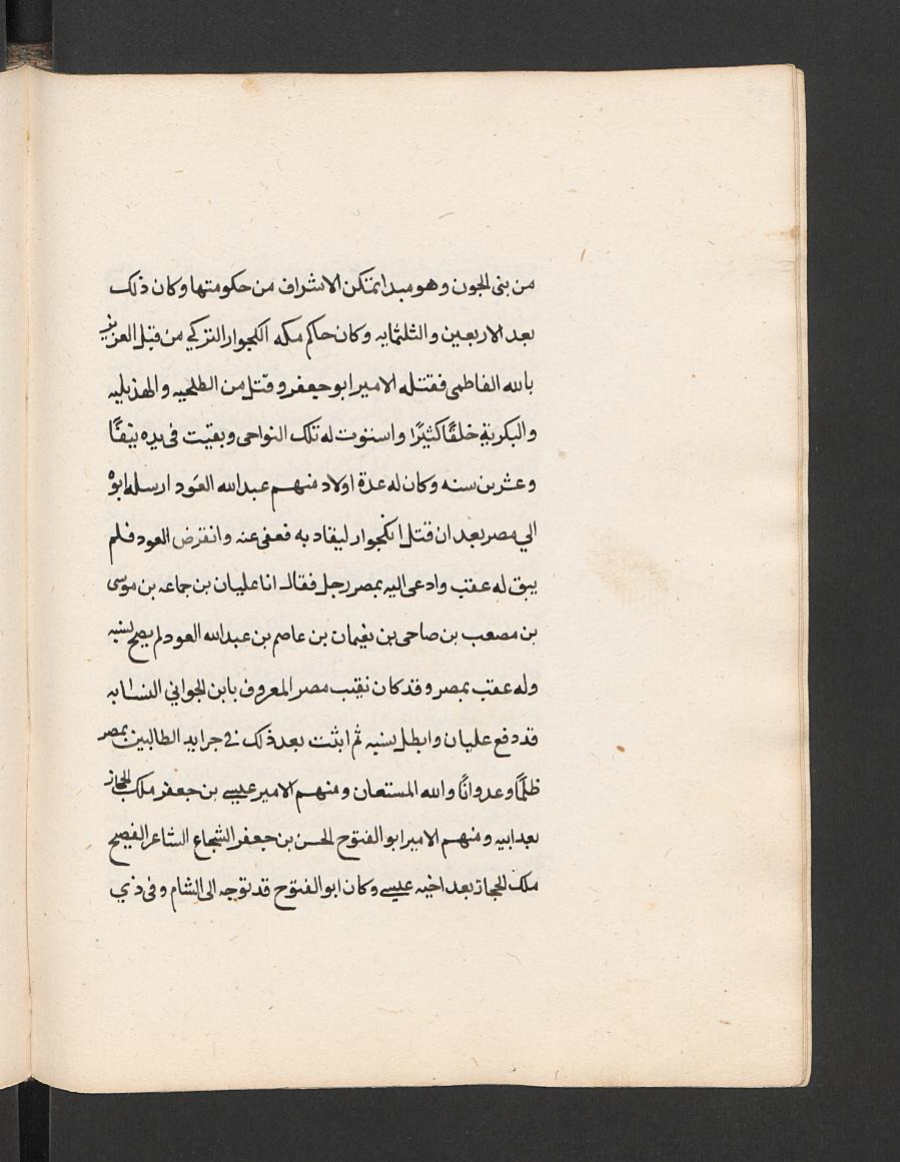 من بنى الجون وهو مبدا تمتكن الاشراف من حكومتها وكان ذلك
بعد الاربعين والثلثمايه وكان حاكم مكه انكجوار التركي من قبل العزيز
بالله الفاطمى فقتله الامير ابو جعفر وقتل من الطلحيه والهذيليه
والبكرية خلقًا كثيرًا واستوت له تلك النواحى وبقيت فى يده نيفًا
وعشرين سنه وكان له عدة اولاد منهم عبدالله العَود ارسله ابوه
الي مصر بعد ان قتل انكجوار ليقاد به فعفى عنه وانقرض العود فلم
يبق له عقب وادعى اليه بمصر رجل فقال انا عليان بن جماعه بن موسى
بن مصعب بن صاحى بن نعيمان بن عاصم بن عبدالله العود لم يصح نسبه
وله عقب بمصر وقد كان نقيب مصر المعروف بابن الجواني النسابه
قد دفع عليان وابطل نسبه ثم اثبت بعد ذلك في جرايد الطالبين بمصر
ظلمًا وعدوانًا والله المستعان ومنهم الامير عيسى بن جعفر ملك الحجاز
بعد ابيه ومنهم الامير ابو الفتوح الحسن بن جعفر الشجاع الشاعر الفصيح
ملك الحجاز بعد اخيه عيسى وكان ابو الفتوح قد توجه الى الشام وفى ذي